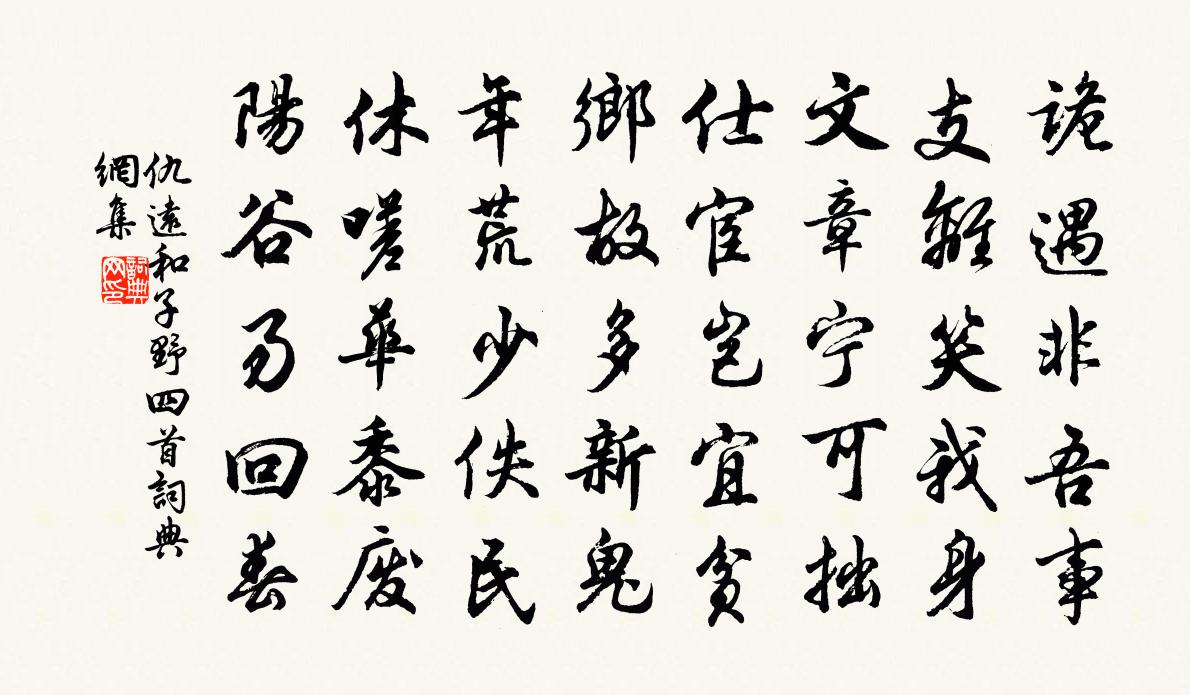 詭遇非吾事
支離笑我身
文章宁可拙
仕宦豈宜貧
鄉故多新鬼
年荒少佚民
休嗟華黍廢
陽谷易回春
仇遠和子野四首詞典
網集
詞典網印